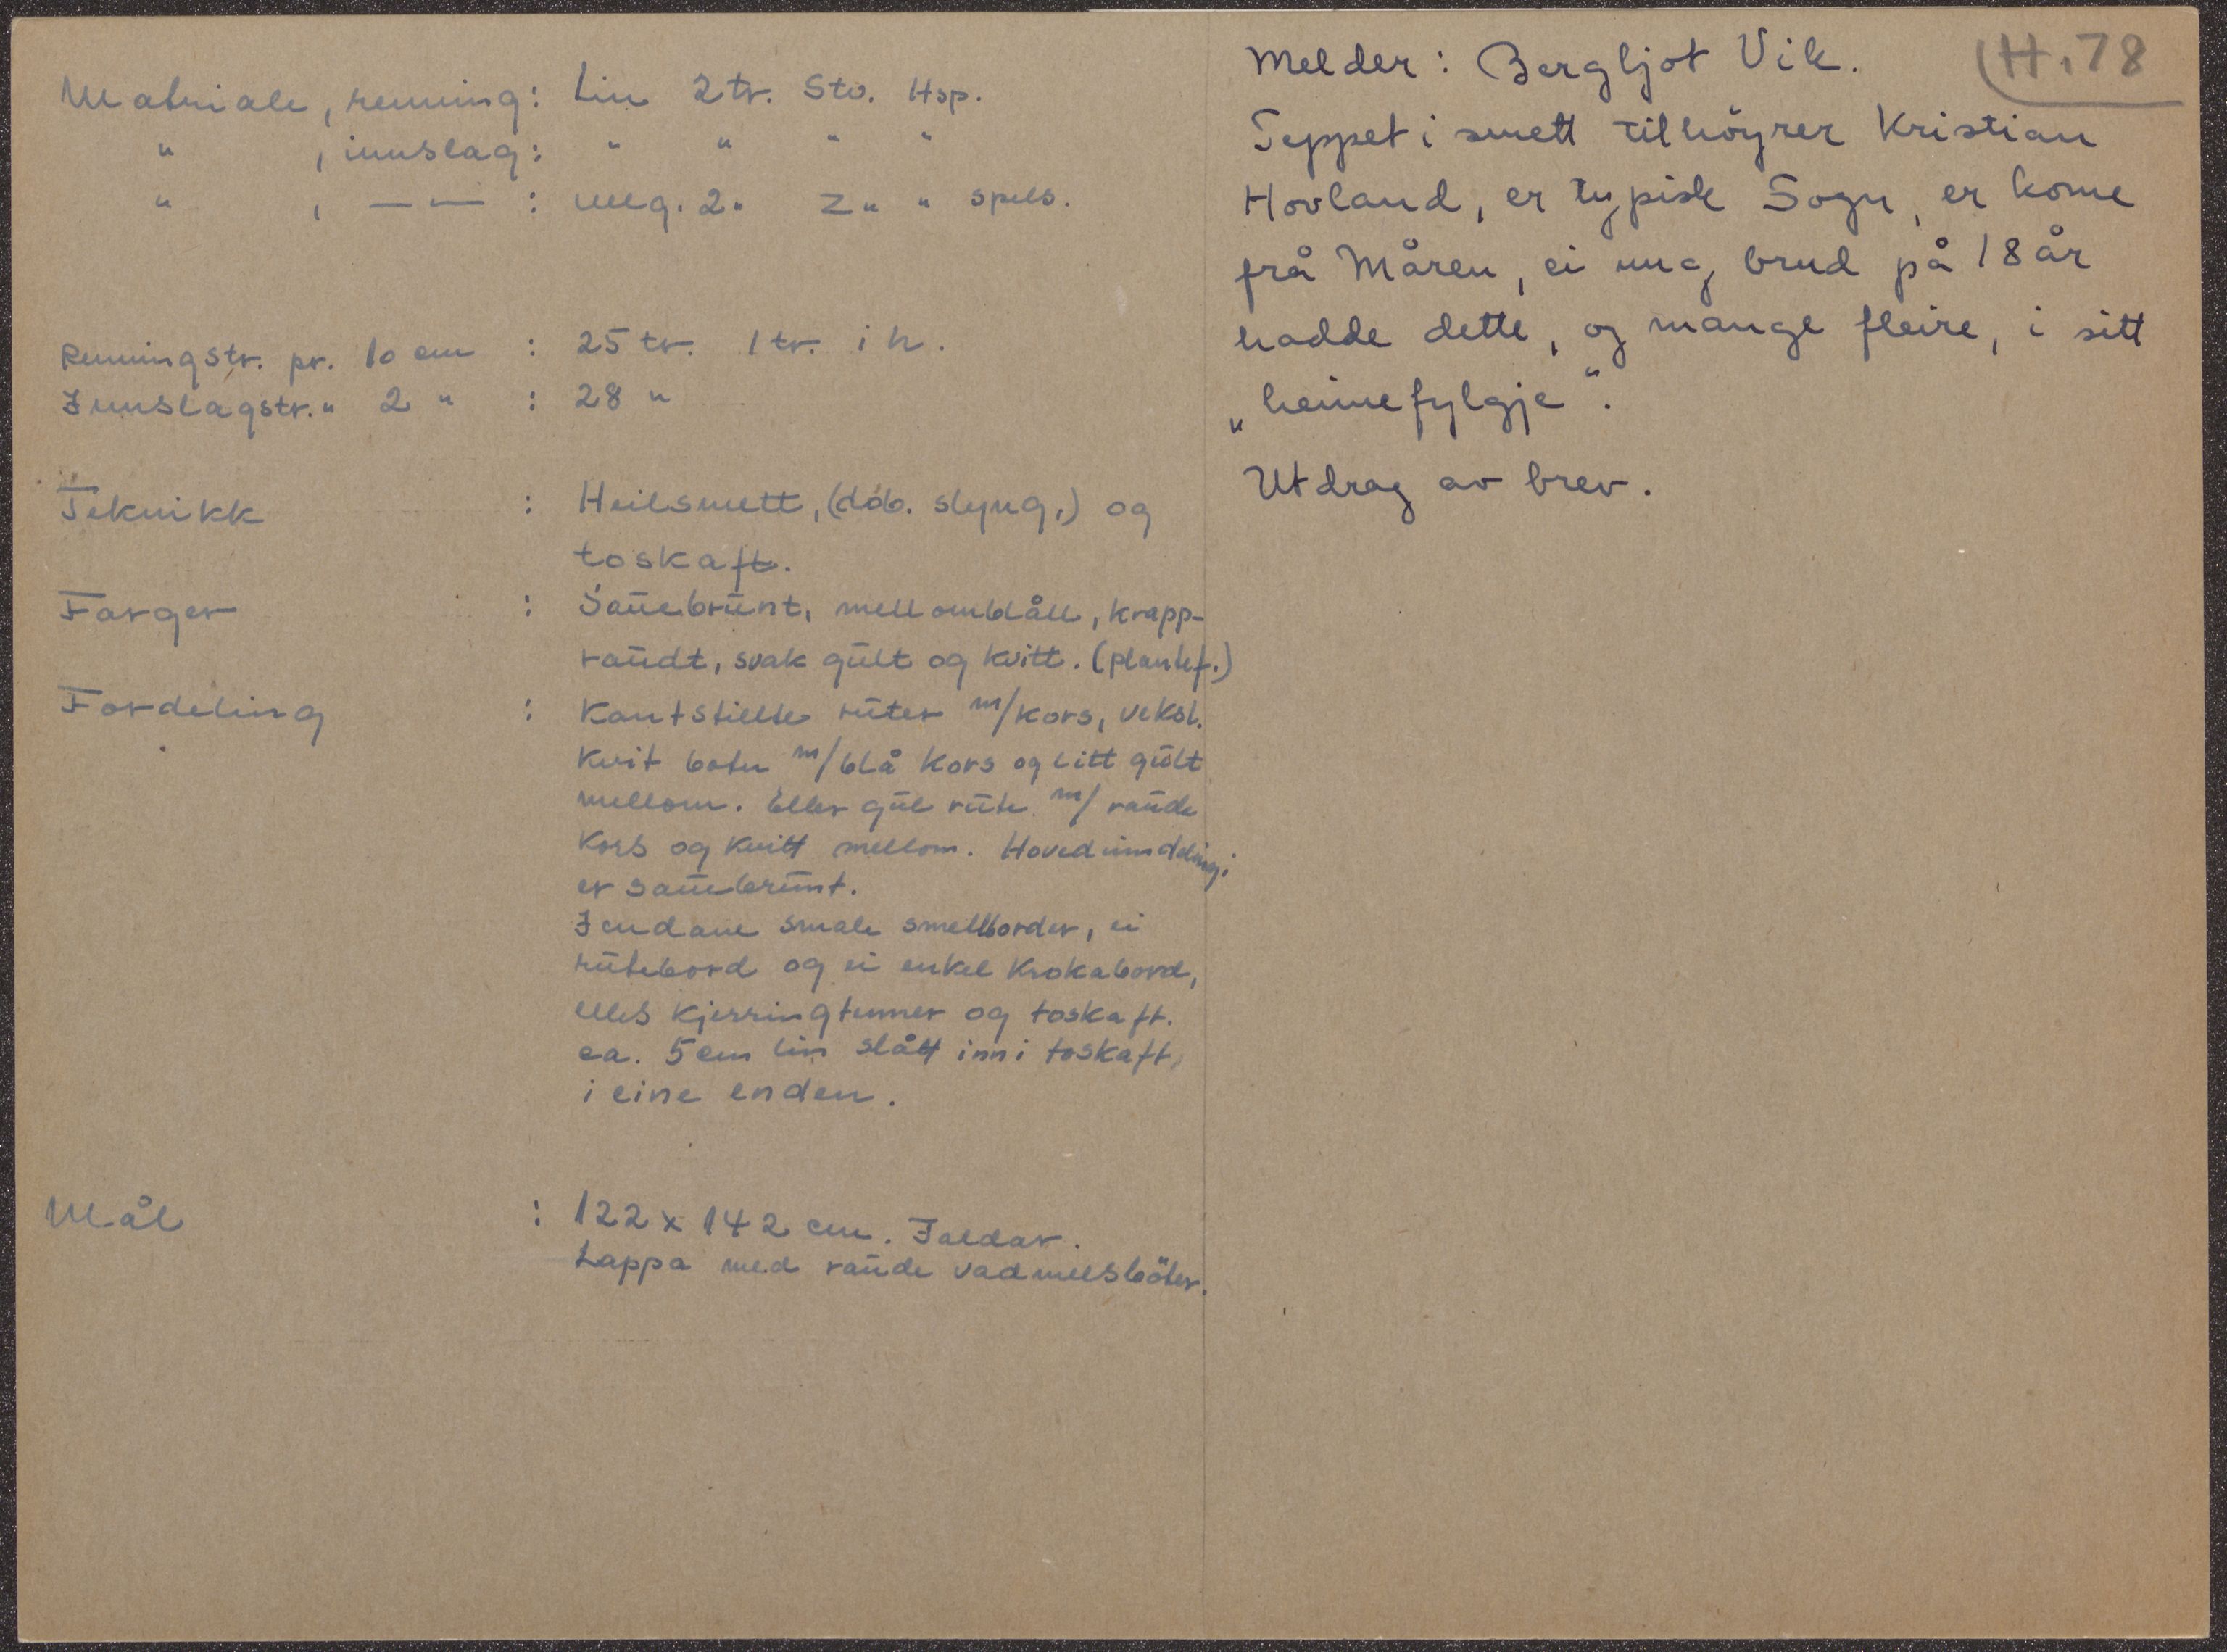 Materiale, renning: Lin 2tr. Stv. Hsp.
" , innslag: " " " "
" , — — : ullg. 2" Z" " spels.
Renningstr. pr. 10 cm : 25 tr. 1 tr. i h.
Innslagstr. " 2 " : 28 "
Teknikk : Heilsmett, (dob. slyng,) og
toskaft.
Farger : Sauebrunt, mellomblått, krapp-
raudt, svak gult og kvitt. (plantef.)
Fordeling : Kantstilte ruter m/kors, veksl.
Kvit botn m/blå kors og litt gult
mellom. Eller gul rute m/ raude
Kors og kvitt mellom. Hovedinndeling
er sauebrunt.
I endane smale smettborder, ei
rutebord og ei enkel krokabord,
elles kjerringtenner og toskaft.
ca. 5 cm lin slått inn i toskaft,
i eine enden.
Mål : 122 x 142 cm. Faldar.
Lappa med raude vadmelsbøter.
Melder: Bergljot Vik.
H. 78
Teppet i smett tilhöyrer Kristian
Hovland, er typisk Sogn, er kome
frå Måren, ei ung brud på 18 år
hadde dette, og mange fleire, i sitt
„heimefylgje".
Utdrag av brev.